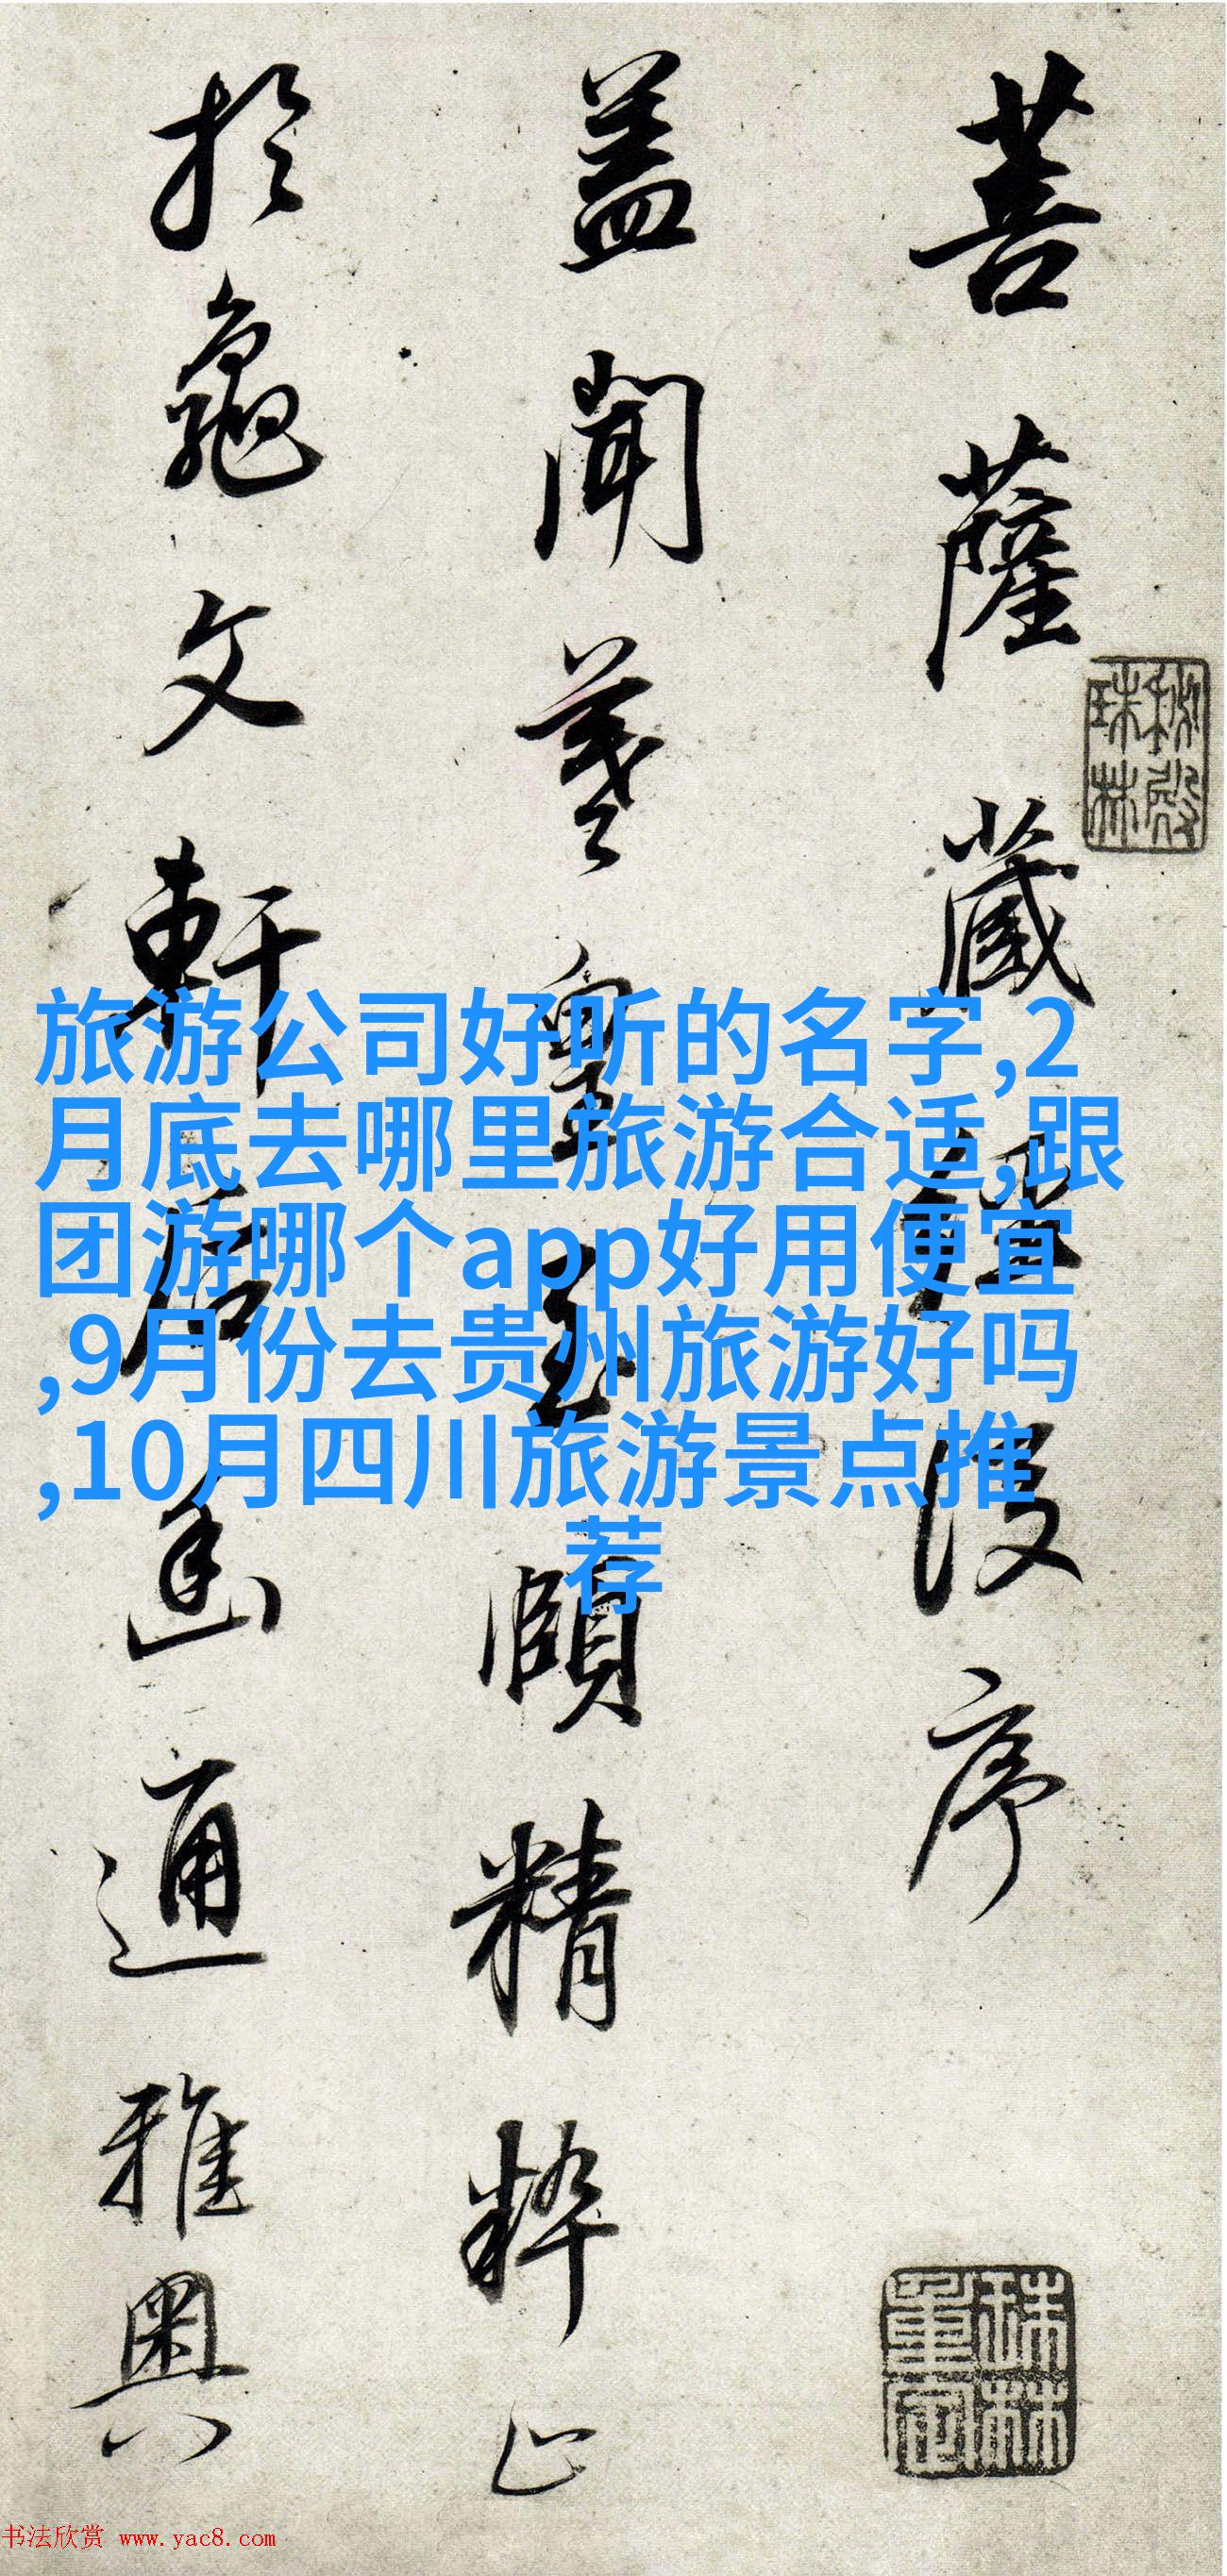 菩薩藏經後序
盖聞羲皇至賾精粹止
於龜文軒后幽通雅奧
秘殿珠林
珠林重定
旅游公司好听的名字,2
月底去哪里旅游合适,跟
团游哪个app好用便宜
,9月份去贵州旅游好吗
,10月四川旅游景点推
荐
书法欣赏 www.yac8.com